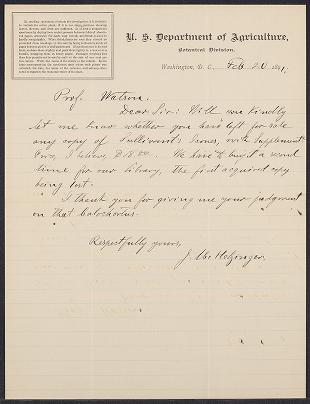 U. S. Department of Agriculture,
Botanical Division.
Washington, D. C., Feb. 20 1891.
Prof. Watson.
Dear Sir: Will you kindly
let me know whether you have left for sale
any copy of Sullivant's Icones, with Supplement
Price, I believe, $ 18.00. We have to buy a second
time for our library, the first acquired copy
being lost.
I thank you for giving me your judgment
on that Calochortus.
Respectfully yours,
J. M. Holzinger.